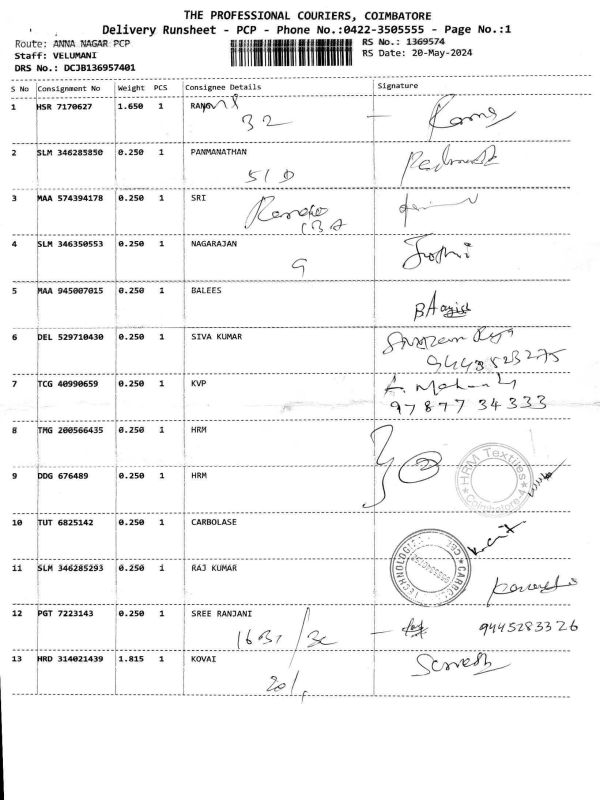 THE PROFESSIONAL COURIERS, COIMBATORE
Delivery Runsheet - PCP - Phone No.:0422-3505555 - Page No.:1
Route: ANNA NAGAR PCP RS No.: 1369574
Staff: VELUMANI RS Date: 20-May-2024
DRS No.: DCJB136957401
S No Consignment No Weight PCS Consignee Details Signature
1 HSR 7170627 1.650 1
32
2 SLM 346285850 0.250 1 PANMANATHAN
51 D
3 MAA 574394178 0.250 1 SRI
4 SLM 346350553 0.250 1 NAGARAJAN
9
5 MAA 945007015 0.250 1 BALEES
6 DEL 529710430 0.250 1 SIVA KUMAR
9443523275
7 TCG 40990659 0.250 1 KVP
97877 34333
8 TMG 200566435 0.250 1 HRM
2
HRM Textiles
Coimbatore
9 DDG 676489 0.250 1 HRM
10 TUT 6825142 0.250 1 CARBOLASE
11 SLM 346285293 0.250 1 RAJ KUMAR
12 PGT 7223143 0.250 1 SREE RANJANI
9445283326
13 HRD 314021439 1.815 1 KOVAI